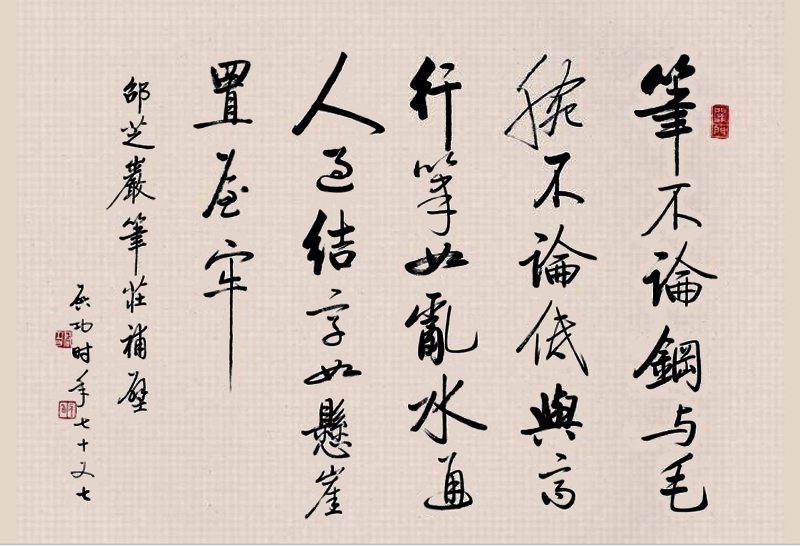 筆不論鋼与毛
腕不論低與高
行筆如亂水通
人過結字如懸崖
置屋牢
邵芝巖筆莊補壁
启功时年七十又七